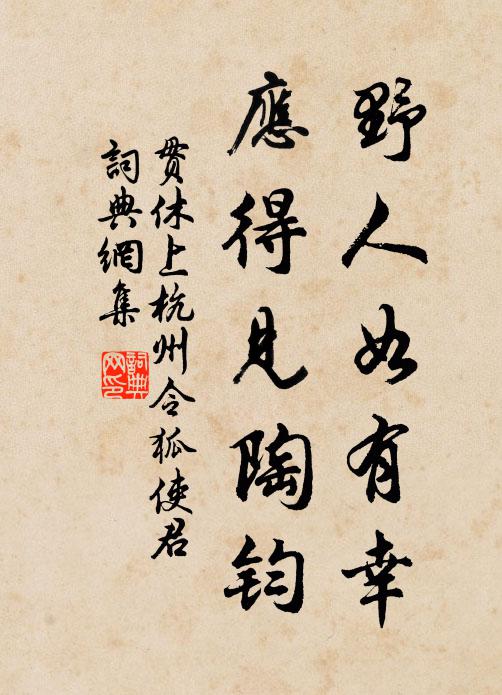 野人如有幸
應得見陶钧
贯休上杭州令狐使君
詞典網集
詞典网印